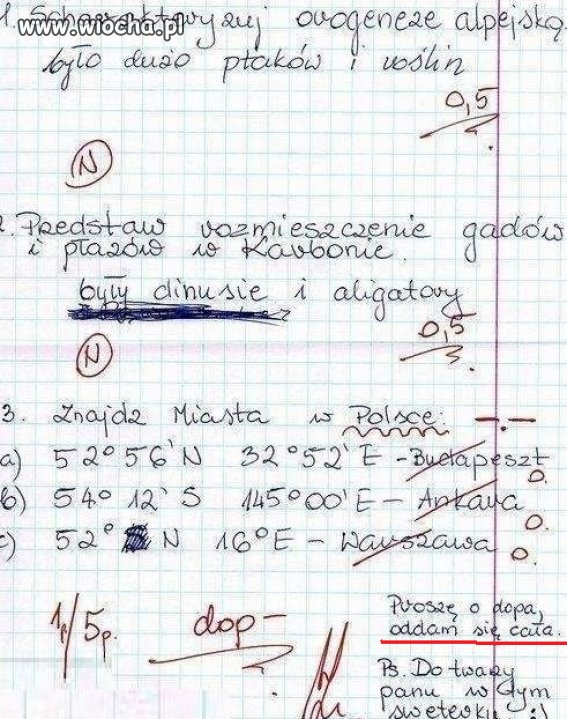 www.wiocha.pl
1. Scharakteryzuj orogenezę alpejską.
było dużo ptaków i roślin
0,5
N
2. Przedstaw rozmieszczenie gadów
i płazów w Karbonie.
były dinusie i aligatory
0,5
N
3. Znajdz Miasta w Polsce:
a) 52°56'N 32°52'E - Budapeszt
0.
b) 54° 12' S 145°00'E - Ankara
0.
c) 52° N 16°E - Warszawa
0.
1p/5p. dop-
Proszę o dopa,
oddam się cała.
Ps. Do twarzy
panu w tym
sweterku :)